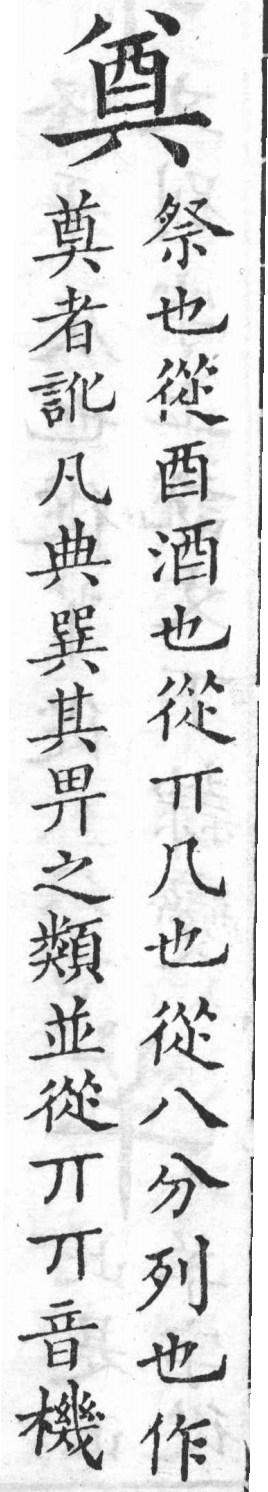 奠
祭也從酉酒也從丌几也從八分列也作
奠者訛凡典巽其畀之類並從丌丌音機